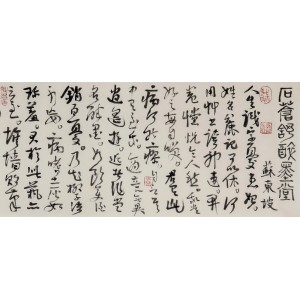 石蒼舒醉墨堂
蘇東坡
人生識字憂患始
姓名麤記可以休何
用草書誇神速開
卷惝怳令人愁我嘗
好之每自笑君有此
病何能瘳自言其
中有至樂適意無異
逍遙遊近者作堂名
醉墨如飲美酒
銷百憂乃知柳子語
不妄病嗜土炭如
珍羞君於此藝亦
云至堆牆敗筆